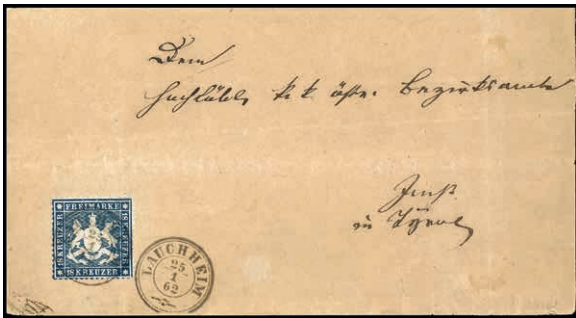 Dem
k. k. öster. Bezirksamte
Imst
in Tyrol
FREIMARKE
18 KREUZER
18 KREUZER
18 KREUZER
LAUCHHEIM
25
1
62